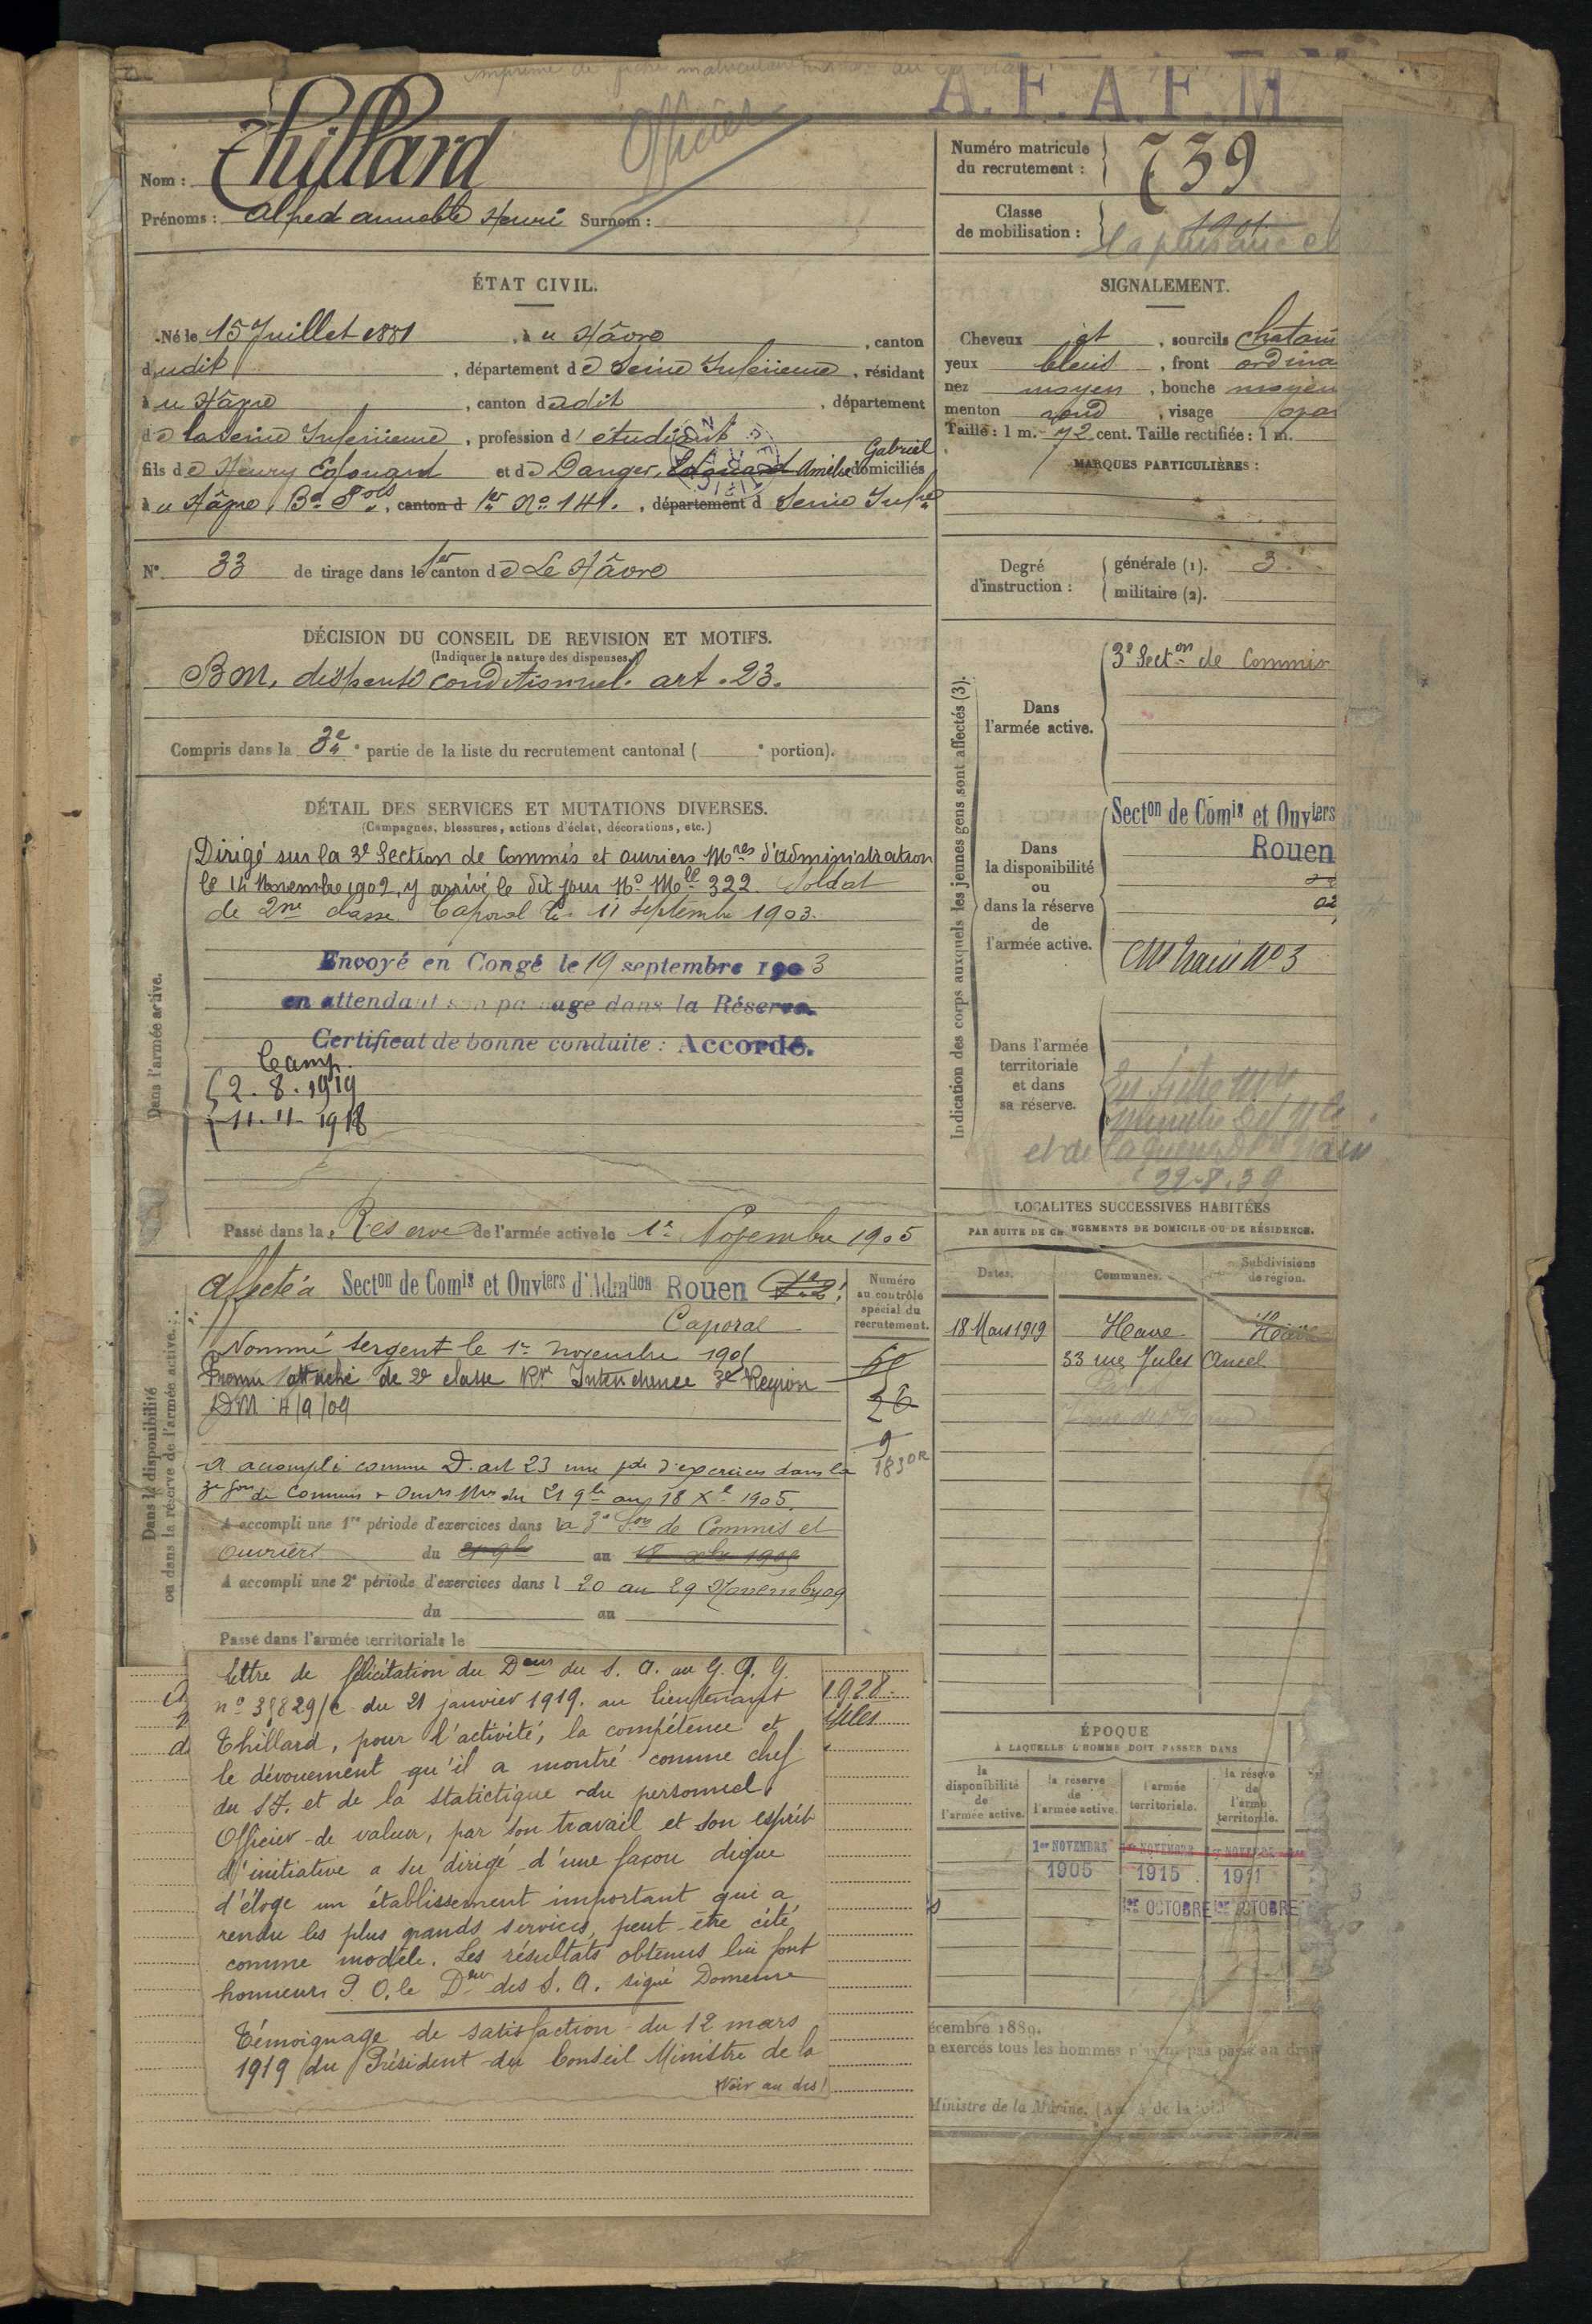 A.F.A.F.M
Officier
Nom : Thillard
Prénoms : Alfred Henri Surnom :
Numéro matricule
du recrutement : 739
Classe
de mobilisation : 1901
ÉTAT CIVIL.
Né le 15 Juillet 1881, à u Hâvre, canton
dudit, département de Seine Inférieure, résidant
à u Hâvre, canton dudit, département
de la Seine Inférieure, profession d'étudiant
fils de Henry Edouard et de Danger, Edouard Amélie Gabriel domiciliés
à u Hâvre, Bd, canton d 1er No 141., département d Seine Infre
No 33 de tirage dans le 1er canton de Le Hâvre
SIGNALEMENT.
Cheveux et, sourcils chatain
yeux bleus, front ordina
nez moyen, bouche moyen
menton rond, visage
Taille : 1 m. 72 cent. Taille rectifiée : 1 m.
MARQUES PARTICULIÈRES :
Degré
d'instruction :
générale (1). 3.
militaire (2).
DÉCISION DU CONSEIL DE REVISION ET MOTIFS.
(Indiquer la nature des dispenses.)
Bon, dispensé conditionnel. art. 23.
Compris dans la 3e partie de la liste du recrutement cantonal ( e portion).
DÉTAIL DES SERVICES ET MUTATIONS DIVERSES.
(Campagnes, blessures, actions d'éclat, décorations, etc.)
Dans l'armée active.
Dirigé sur la 3e Section de Commis et ouvriers Mres d'administration
le 14 Novembre 1902, y arrivé le dit jour No Mlle 322. Soldat
de 2me classe. Caporal le 11 septembre 1903.
Envoyé en Congé le 19 septembre 1903
en attendant son passage dans la Réserve.
Certificat de bonne conduite : Accordé.
Camp.
2.8.1919
11.11.1918
Passé dans la Réserve de l'armée active le 1er Novembre 1905
Indication des corps auxquels les jeunes gens sont affectés (3).
Dans
l'armée active.
3e Secton de Commis
Dans
la disponibilité
ou
dans la réserve
de
l'armée active.
Secton de Comis et Ouvters
Rouen
02
Dans l'armée
territoriale
et dans
sa réserve.
22-8-39
LOCALITES SUCCESSIVES HABITÉES
PAR SUITE DE CH NGEMENTS DE DOMICILE OU DE RÉSIDENCE.
Dates. Communes. Subdivisions de région.
18 Mars 1919 Havre Havre
33 rue Jules Ancel
Dans la disponibilité
ou dans la réserve de l'armée active.
Affecté à Secton de Comis et Ouvters d'Adation Rouen
Caporal
Nommé sergent le 1er novembre 1905
Promu attaché de 2e classe Intendance 3e Région
DM 4/9/09
Numéro
au contrôle
spécial du
recrutement.
26
9
A accompli comme D. art 23 une pde d'exercices dans la
3e Son de Commis & Ouvrs Mres du 21 9bre au 18 Xbre 1905.
A accompli une 1re période d'exercices dans la 3e Son de Commis et
Ouvriers du 21 9bre au 18 xbre 1905
A accompli une 2e période d'exercices dans l 20 au 29 Novembre 09
du au
Passé dans l'armée territoriale le
lettre de félicitation du Deur du S. A. au G. Q. G.
no 35829/C du 21 janvier 1919. au lieutenant
Thillard, pour l'activité, la compétence et
le dévouement qu'il a montré comme chef
du S.F. et de la statictique du personnel
Officier de valeur, par son travail et son esprit
d'initiative a su dirigé d'une façon digne
d'éloge un établissement important qui a
rendu les plus grands services, peut-être cité
comme modèle. Les résultats obtenus lui font
honneur. P. O. le Deur des S. A. signé Domeure
Témoignage de satisfaction du 12 mars
1919 du Président du Conseil Ministre de la
Voir au dos!
1928.
ÉPOQUE
À LAQUELLE L'HOMME DOIT PASSER DANS
la disponibilité de l'armée active.
la réserve de l'armée active.
l'armée territoriale.
la réserve de l'armée territoriale.
1er NOVEMBRE 1er NOVEMBRE 1er NOVEMBRE
1905 1915 1921
1er OCTOBRE 1er OCTOBRE
écembre 1889.
exercés tous les hommes n'ayant pas passé au dra
Ministre de la Marine.